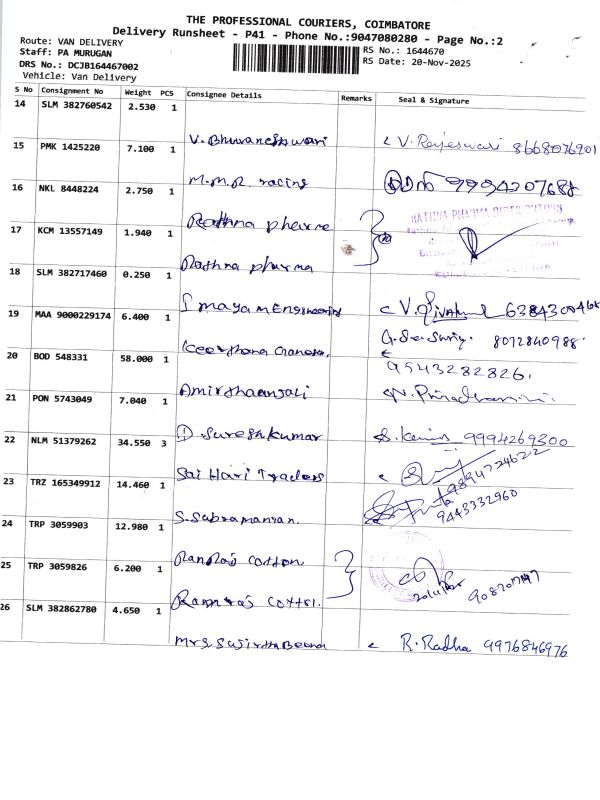 THE PROFESSIONAL COURIERS, COIMBATORE
Delivery Runsheet - P41 - Phone No.:9047080280 - Page No.:2
Route: VAN DELIVERY
Staff: PA MURUGAN
RS No.: 1644670
DRS No.: DCJB164467002
RS Date: 20-Nov-2025
Vehicle: Van Delivery
S No Consignment No Weight PCS Consignee Details Remarks Seal & Signature
14 SLM 382760542 2.530 1
V. Bhuvaneshwari V. Rajeswari 8668076901
15 PMK 1425220 7.100 1
M.M.R. racing 9994207688
16 NKL 8448224 2.750 1
Rathna pharma RATHNA PHARMA DISTRIBUTORS
17 KCM 13557149 1.940 1
Rathna pharma
18 SLM 382717460 0.250 1
Engineering
19 MAA 9000229174 6.400 1
8072840988
Keerthana
20 BOD 548331 58.000 1
9543282826
21 PON 5743049 7.040 1
D. Sureshkumar 9994269300
22 NLM 51379262 34.550 3
Sai Hari Traders
23 TRZ 165349912 14.460 1
9443332960
S. Subramanian.
24 TRP 3059903 12.980 1
Ramraj cotton
25 TRP 3059826 6.200 1
Ramraj
26 SLM 382862780 4.650 1
Mrs. R. Radha 9976846976